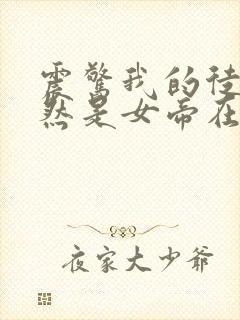 震惊我的徒
然是女帝在
夜家大少爷